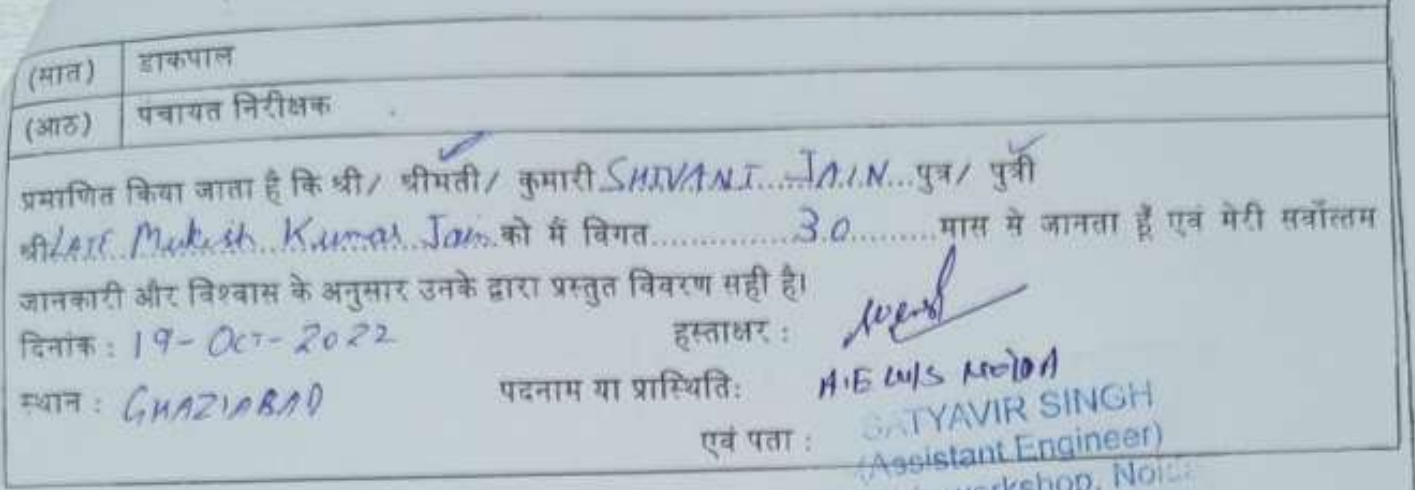 (सात) डाकपाल
(आठ) पंचायत निरीक्षक
प्रमाणित किया जाता है कि श्री/ श्रीमती/ कुमारी SHIVANI.....JAIN...पुत्र/ पुत्री
श्री LATE Mukesh Kumar Jain को मैं विगत..............30.........मास मे जानता हूँ एवं मेरी सर्वोत्तम
जानकारी और विश्वास के अनुसार उनके द्वारा प्रस्तुत विवरण सही है।
दिनांक : 19-Oct-2022 हस्ताक्षर :
स्थान : GHAZIABAD पदनाम या प्रास्थिति: A.E W/S NOIDA
एवं पता : SATYAVIR SINGH
(Assistant Engineer)
workshop, Noida